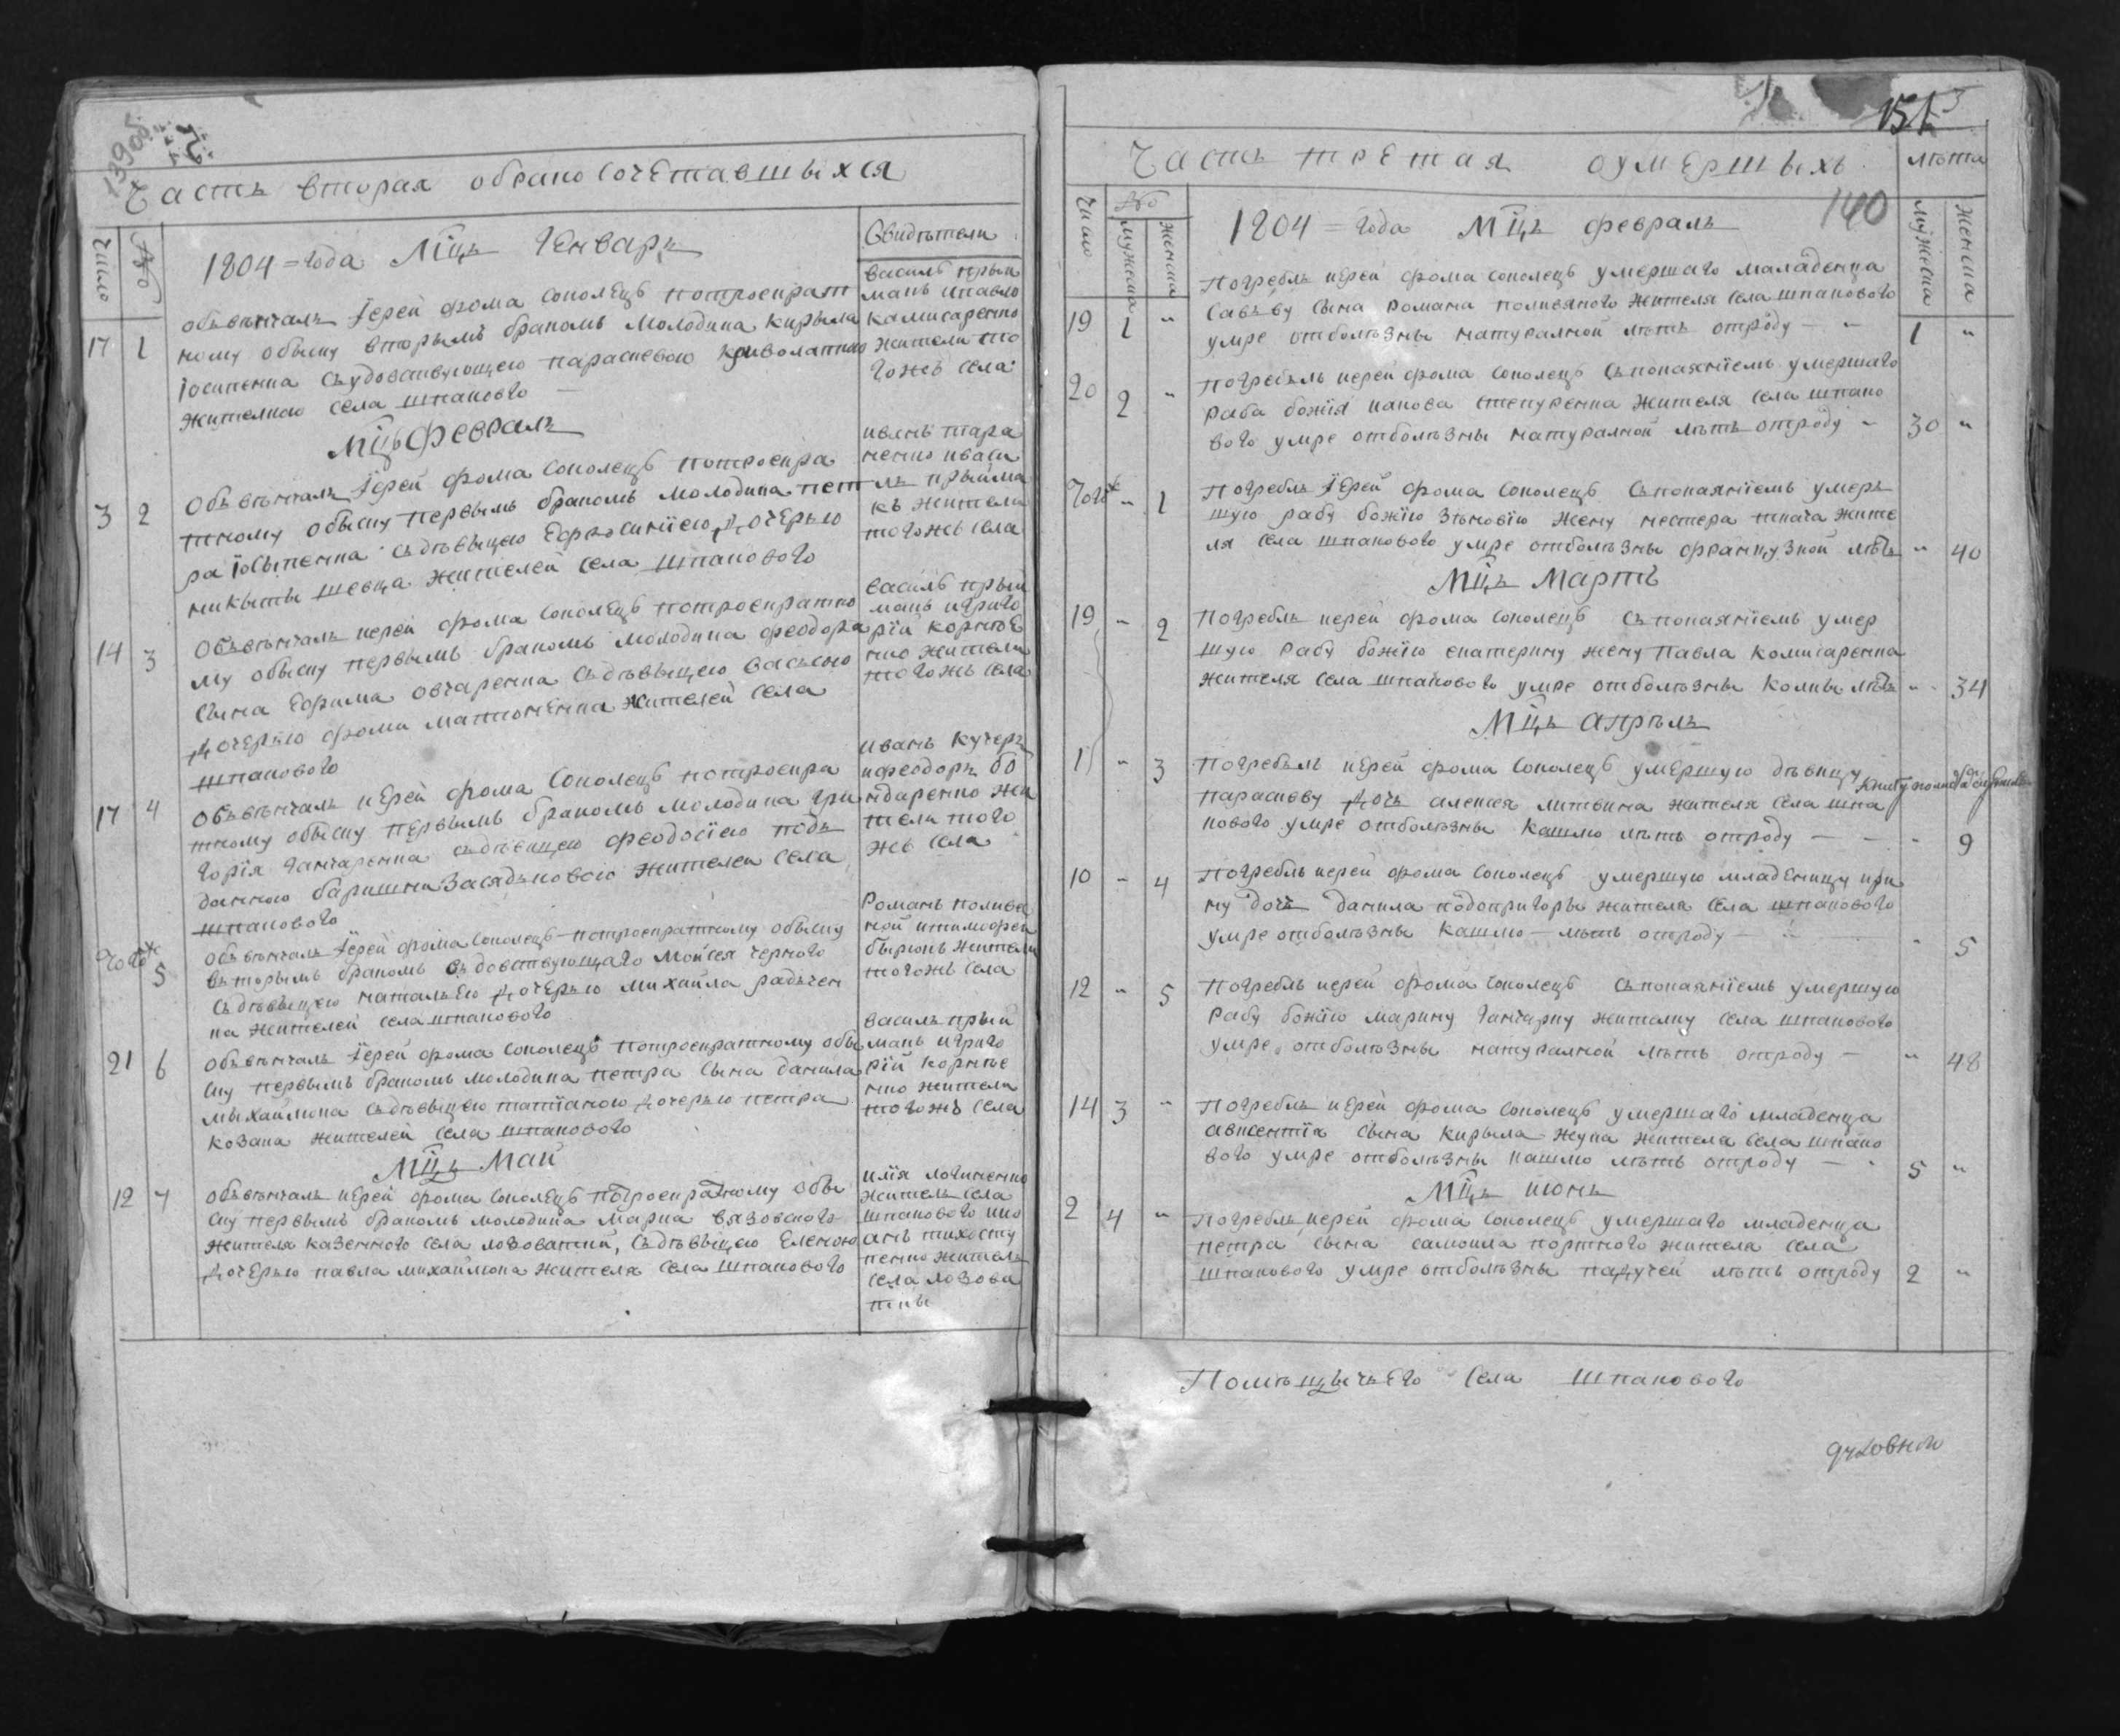 139 об.
Часть вторая обрано сочетавшыхся
Число
1804 = года Мць Генваръ
Свидѣтели
17 1
обвѣнчалъ Іерей фома Соколецъ потроекрат
ному обыску вторымъ бракомъ Молодика Кирыла
Іосипенка съудовствующею параскевою
жителкою села шпакового
василь прый
макъ ипавло
камисаренко
жители то
гожъ села
Мць февраль
3 2
Обвѣнчалъ Іерей фома Соколецъ потроекра
тному обыску первымъ бракомъ молодика пет
ра сьдѣвыцею Ефросиніею дочерью
микыты шевца жителей села шпакового
иванъ тара
ненко иваси
ль прыйма
къ жители
тогожъ села
14 3
Обвѣнчалъ иерей фома Соколецъ потроекратно
му обыску первымъ бракомъ молодика феодора
сына Ефима овчаренка сьдѣвыцею васьсою
дочерью фомы жителей села
шпакового
василь прый
макъ игриго
рій корнѣе
нко жители
тогожъ села
17 4
Обвѣнчалъ иерей фома Соколецъ потроекра
тному обыску первымъ бракомъ молодика гри
горія ганчаренка сьдѣвицею феодосіею подъ
данною жителей села
шпакового
иванъ кучеръ
ифеодоръ бо
ндаренко жи
тели того
жъ села
Тогож 5
обвѣнчалъ Іерей фома Соколецъ потроекратному обыску
вьторымъ бракомъ вьдовствующаго Мойсея черного
сьдѣвыцею натальею дочерью михайла радъчен
ка жителей села шпакового
Романъ поливя
ной итимофей
жители
тогожъ села
21 6
обвѣнчалъ Іерей фома Соколецъ потроекратному обы
ску первымъ бракомъ молодика петра сына данила
мыхайлюка сьдѣвыцею татіаною дочерью петра
козака жителей села шпакового
василь прый
макъ игриго
рій корнѣе
нко жители
тогожъ села
Мць Май
12 7
обвѣнчалъ иерей фома Соколецъ потроекратному обы
ску первымъ бракомъ молодика Марка вязовского
жителя казенного села лозоватки, сьдѣвыцею Еленою
дочерью павла михайлюка жителя села шпакового
илія логиненко
житель села
шпакового ико

пенко житель
села лозова
ткы
151
Часть третая оумершыхъ
лѣта
140
Число
мужеска
женска
1804 = года Мць февраль
мужеска
женска
19 1 "
Погребль иерей фома соколецъ умершаго маладенца
Савъву сына романа поливяного жителя села шпакового
умре отболѣзны натуралной лѣтъ отроду — 1 "
20 2 "
Погребль иерей фома соколецъ съпокаяніемъ умершаго
раба божія иакова степуренка жителя села шпако
вого умре отболѣзны натуралной лѣтъ отроду 30 "
Тогож " 1
Погребль Іерей фома соколецъ съпокаяніемъ умеръ
шую рабу божію зѣновію жену нестера ткача жите
ля села шпакового умре отболѣзны французкой лѣтъ " 40
Мць Мартъ
19 " 2
Погребль иерей фома соколецъ съпокаяніемъ умер
шую рабу божію екатерину жену павла комисаренка
жителя села шпакового умре отболѣзны колкы лѣтъ " 34
Мць апрѣль
1 " 3
Погребль иерей фома соколецъ умершую дѣвицу
параскеву дочь алексея литвина жителя села шпа
кового умре отболѣзны кашлю лѣтъ отроду — " 9
10 " 4
Погребль иерей фома соколецъ умершую младеницу ири
ну дочь данила подопригоры жителя села шпакового
умре отболѣзны кашлю — лѣтъ отроду — " 5
12 " 5
Погребль иерей фома соколецъ съпокаяніемъ умершую
рабу божію марину ганчарку жителку села шпакового
умре отболѣзны натуралной лѣтъ отроду — " 48
14 3 "
Погребль иерей фома соколецъ умершаго младенца
авксентія сына кирыла жука жителя села шпако
вого умре отболѣзны кашлю лѣтъ отроду — 5 "
Мць июнь
2 4 "
Погребль иерей фома соколецъ умершаго младенца
петра сына самоила портного жителя села
шпакового умре отболѣзны падучей лѣтъ отроду 2 "
Помѣщычьего села шпакового
духовной